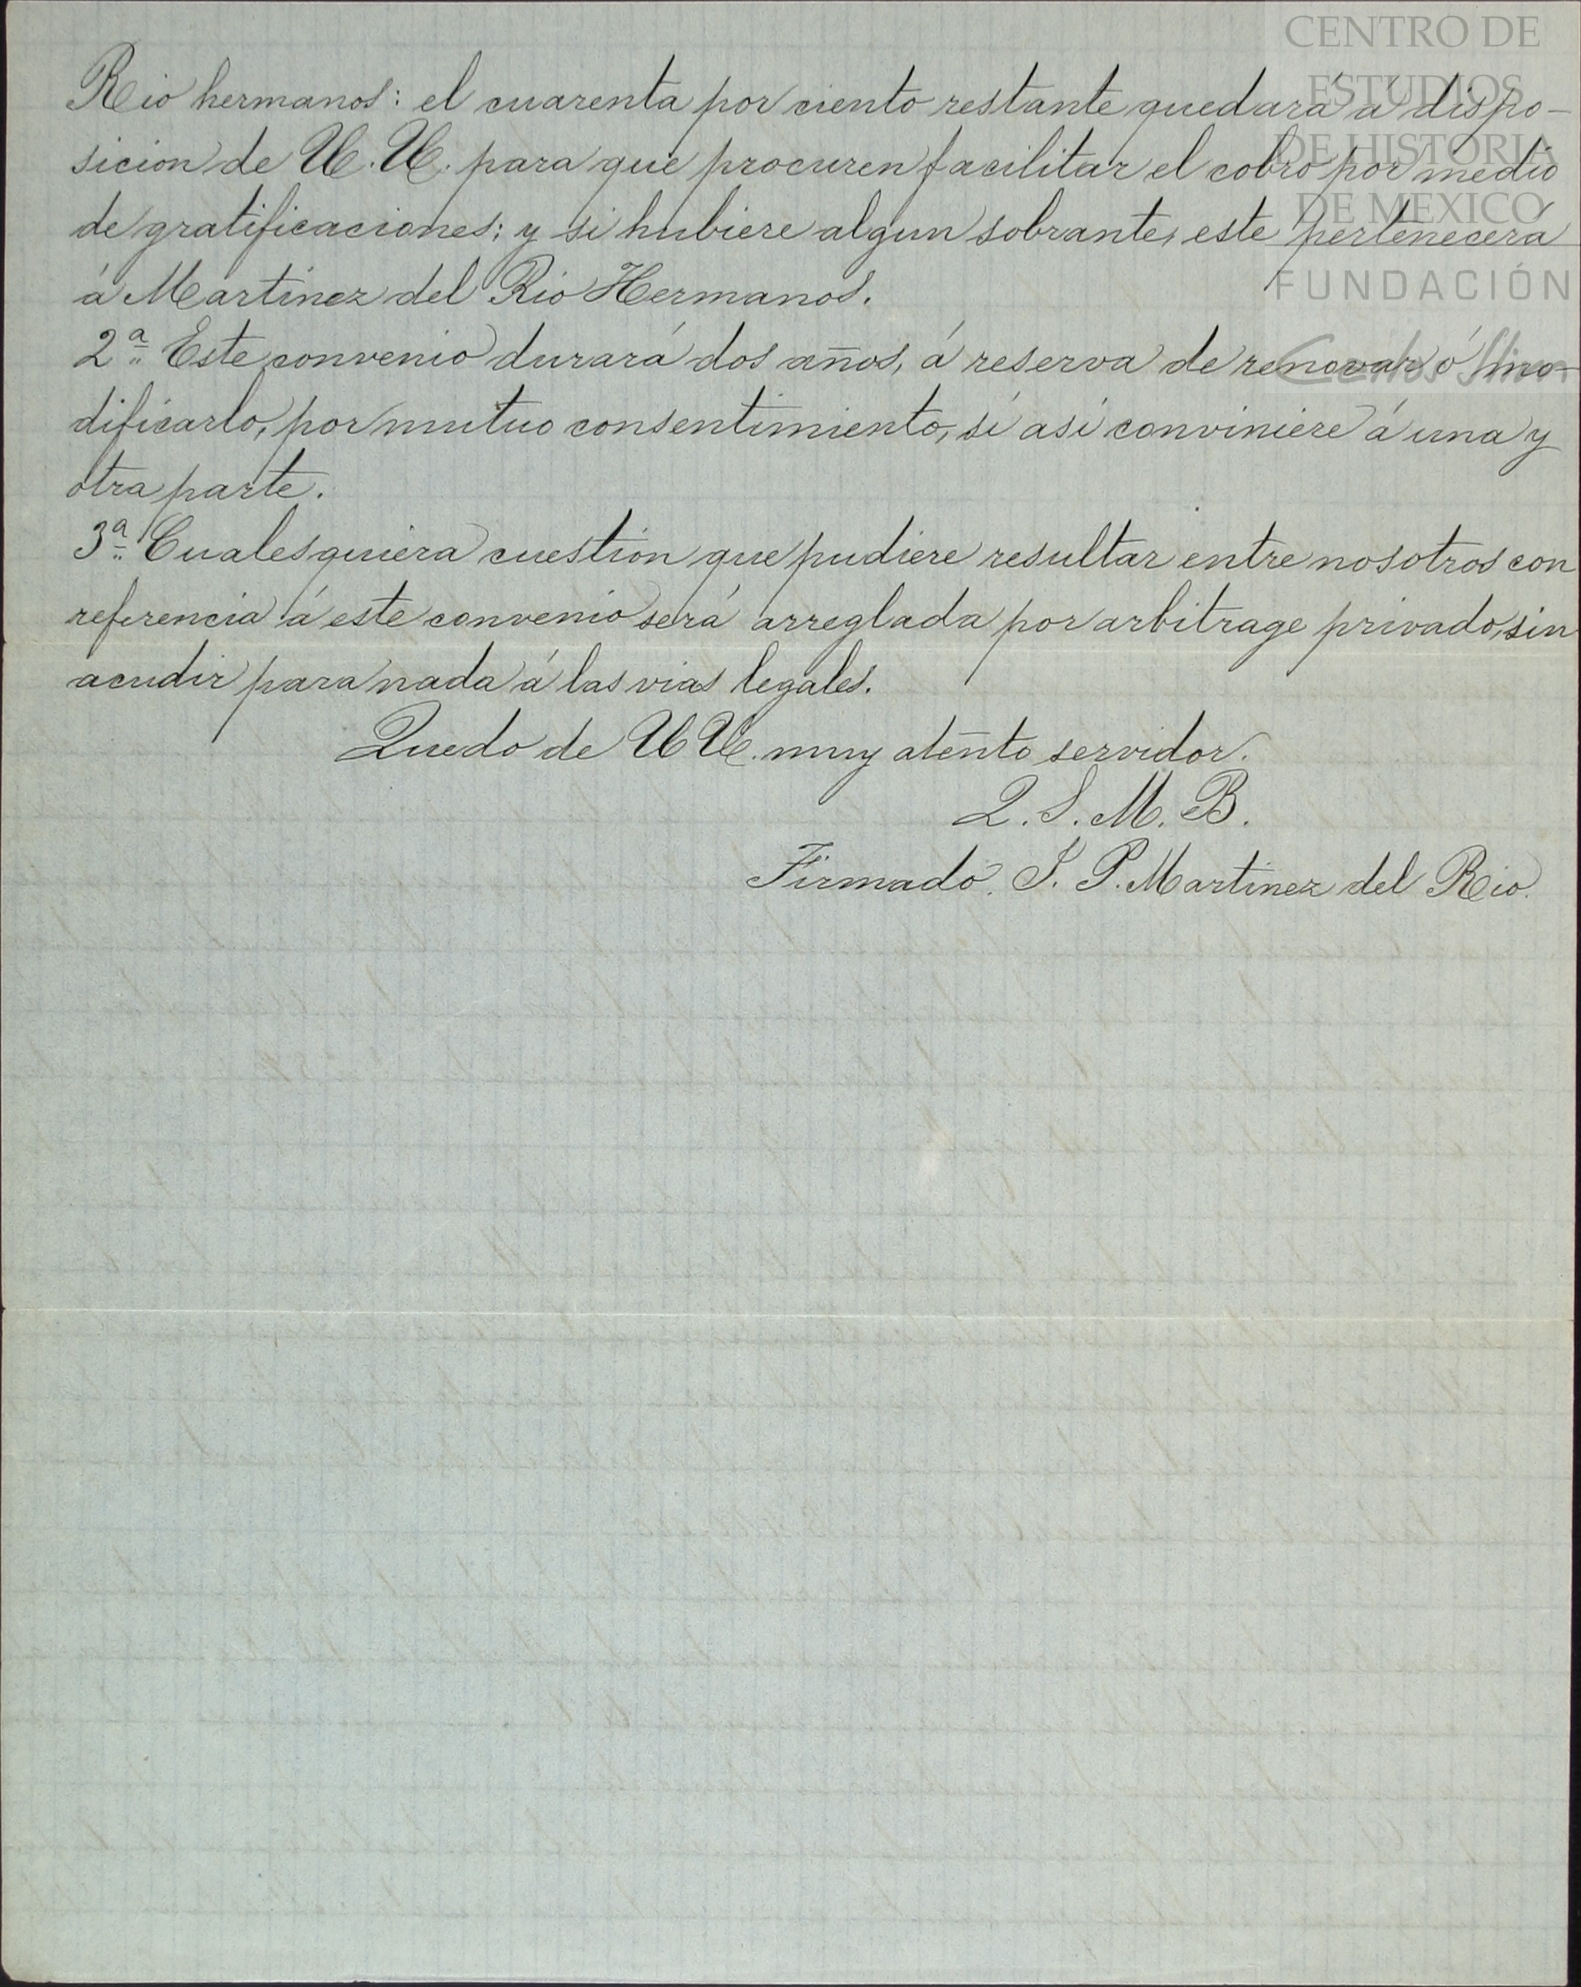 CENTRO DE
ESTUDIOS
DE HISTORIA
DE MEXICO
FUNDACIÓN
Carlos Slim
Rio hermanos: el cuarenta por ciento restante quedará á dispo-
sicion de U.U. para que procuren facilitar el cobro por medio
de gratificaciones; y si hubiere algun sobrante, este pertenecerá
á Martinez del Rio Hermanos.
2ª Este convenio durará dos años, á reserva de renovar ó mo-
dificarlo, por mutuo consentimiento, si asi conviniere á una y
otra parte.
3ª Cualesquiera cuestion que pudiere resultar entre nosotros con
referencia á este convenio será arreglada por arbitrage privado, sin
acudir para nada á las vias legales.
Quedo de UU. muy atento servidor.
Q. S. M. B.
Firmado. J. P. Martinez del Rio.